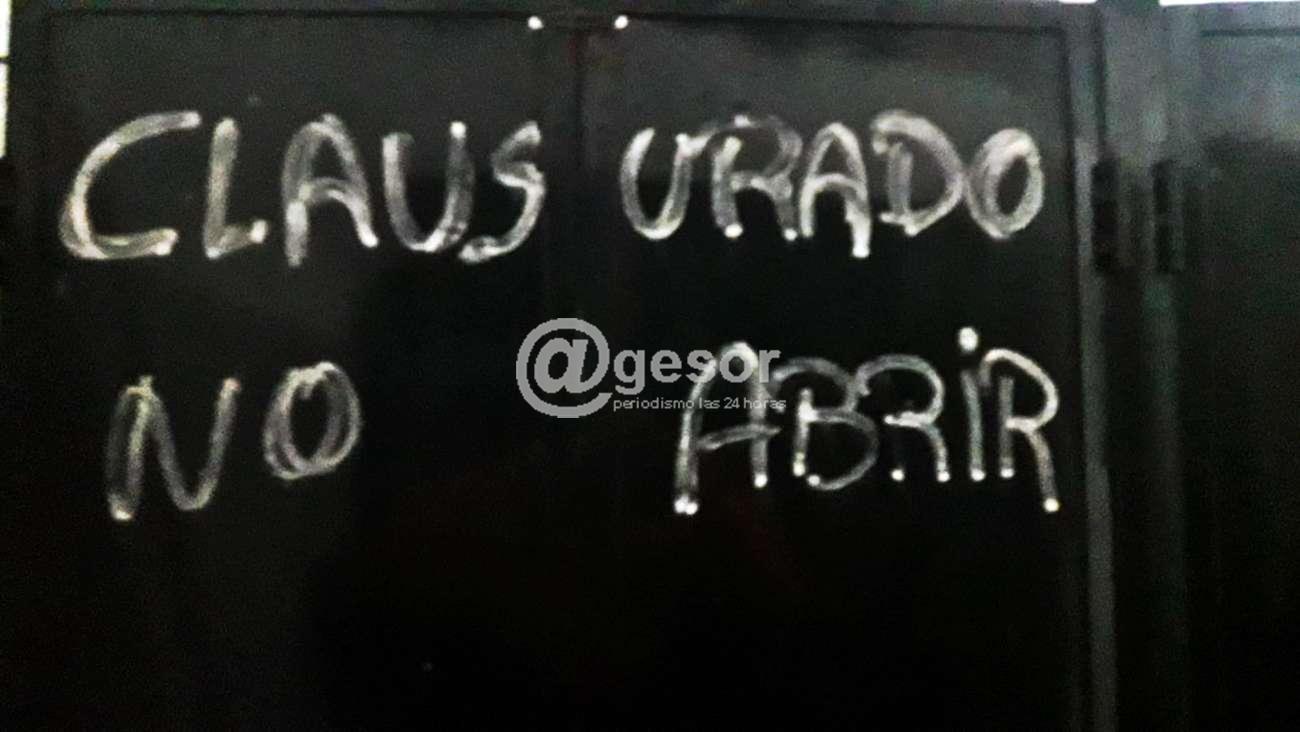 CLAUSURADO
NO ABRiR
@gesor
periodismo las 24 horas